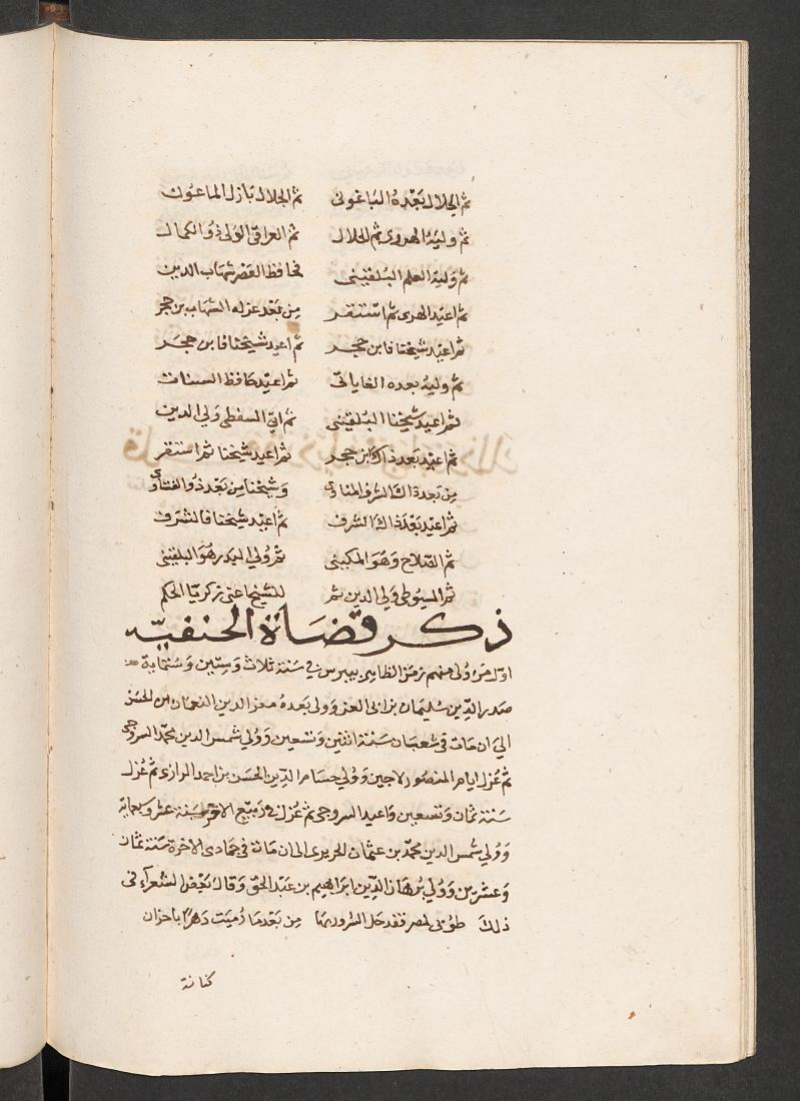 ثم الجلال بعده الباعونى ثم الجلال باذل الماعون
ثم وليه الهروى ثم الجلال ثم العراقى الولى ذو الكمال
ثم وليه العلم البلقينى فحافظ العصر شهاب الدين
ثم اعيد الهروى ثم استقر من بعد عزله الشهاب بن حجر
ثم اعيد شيخنا فابن حجر ثم اعيد شيخنا فابن حجر
ثم وليه بعده القاياتى ثم اعيد حافظ السنات
ثم اعيد شيخنا البلقينى ثم اتى السفطى ولي الدين
ثم اعيد بعد ذاك ابن حجر ثم اعيد شيخنا ثم استقر
من بعد ذاك الشرف المناوى وشيخنا من بعد ذو الفتاوى
ثم اعيد بعد ذاك الشرف ثم اعيد شيخنا فالشرف
ثم الصلاح وهو المكينى ثم ولي البدر هو البلقينى
ثم السيوطى ولي الدين ثم للشيخ اعنى زكريا الحكم
ذكر قضاة الحنفية
اول من ولى منهم زمن الظاهر بيبرس فى سنة ثلاث وستين وستماية
صدر الدين سليمان بن ابى العز وولى بعده معز الدين النعمان بن الحسن
الى ان مات فى شعبان سنة اثنتين وتسعين وولي شمس الدين محمد السروجى
ثم عزل ايام المنصور لاجين وولي حسام الدين الحسن بن احمد الرازى ثم عزل
سنة ثمان وتسعين واعيد السروجى ثم عزل فى ربيع الاخر سنة عشر وسبعماية
وولي شمس الدين محمد بن عثمان الحريرى الى ان مات فى جمادى الاخرة سنة ثمان
وعشرين وولي برهان الدين ابراهيم بن عبد الحق وقال بعض الشعراء فى
ذلك طوبى لمصر فقد حل السرور بها من بعد ما رميت دهرا باحزان
كنانة